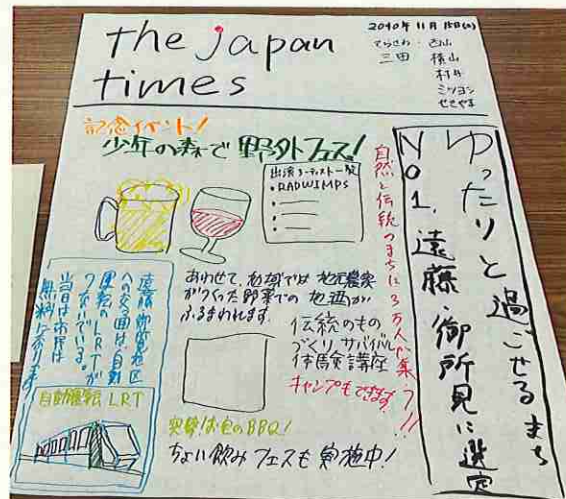 the japan
times
2040年 11月 15日(火)
てらさわ 西山
三田 横山
村井
ミツヨシ
せきやま
ゆったりと過ごせるまち
NO1. 遠藤・御所見に選定
自然と伝統のまちに3万人が集う!!
記念イベント!
少年の森で野外フェス!
出演アーティスト一覧
・RADWIMPS
あわせて、地域では地元農家
がつくった野菜での地酒が
ふるまわれます。
伝統のもの
づくり、サバイバル
体験講座
キャンプもできます
遠藤・御所見地区
への交通は自動
運転のLRTが
つないでいる。
当日は市民は
無料になります!
自動運転LRT
のBBQ!
ちょい飲みフェスも実施中!